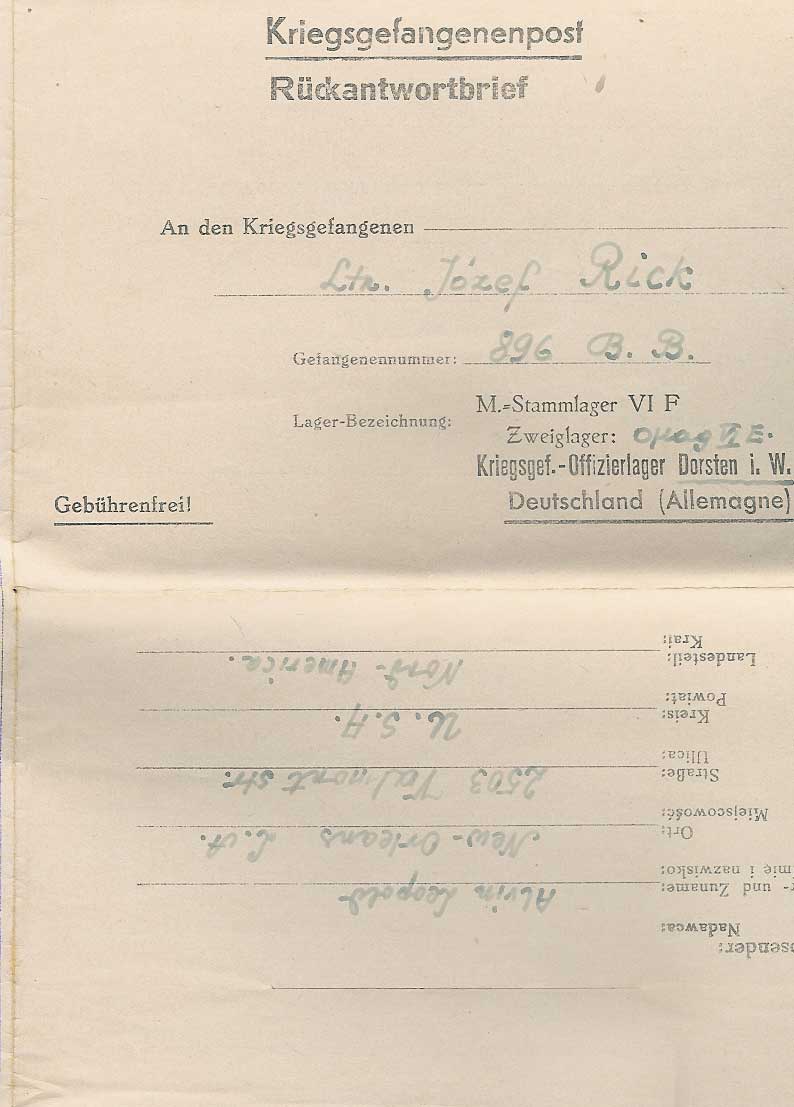 Kriegsgefangenenpost
Rückantwortbrief
An den Kriegsgefangenen
Ltn. Józef Rick
Gefangenennummer: 896 B. B.
Lager-Bezeichnung:
M.=Stammlager VI F
Zweiglager: Oflag VI E.
Kriegsgef.-Offizierlager Dorsten i. W.
Gebührenfrei!
Deutschland (Allemagne)
bsender:
Nadawca:
r- und Zuname: Alvin Leopold
mię i nazwisko:
Ort: New-Orleans L. A.
Miejscowość:
Straße: 2503 Valmont str.
Ulica:
Kreis: U. S. A.
Powiat:
Landesteil: Nord-America.
Kraj: